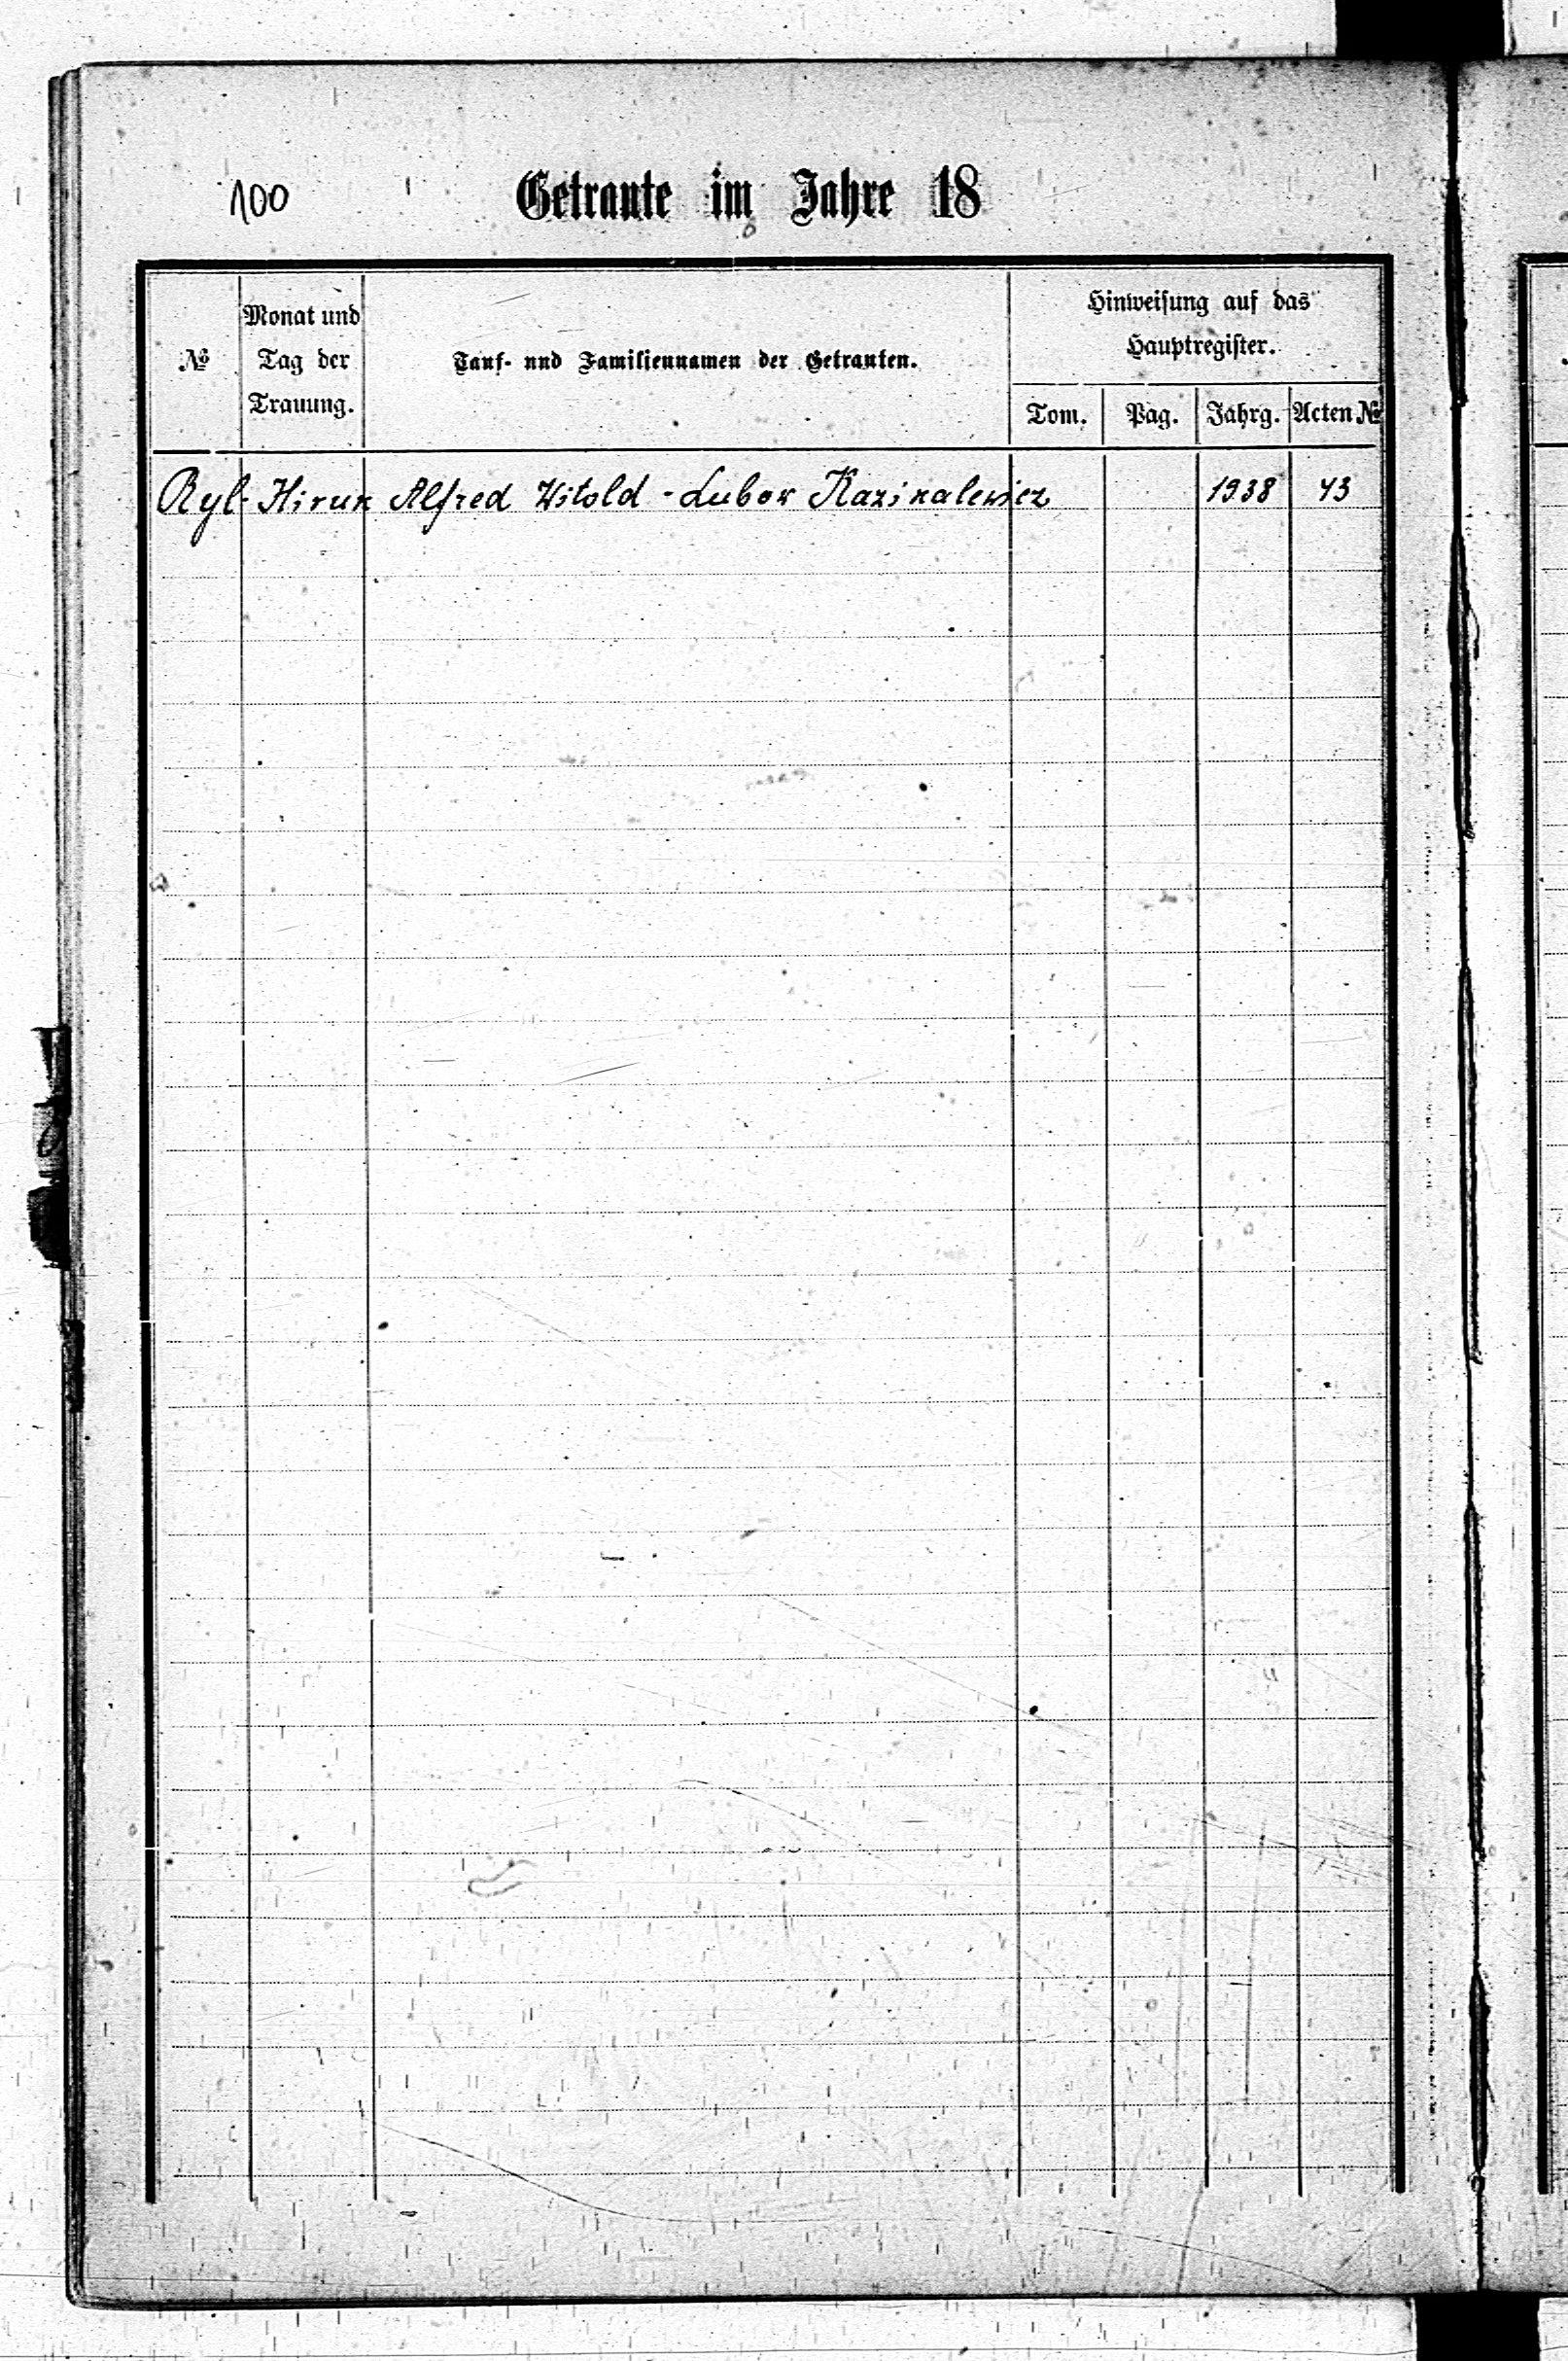 100
Getraute im Jahre 18
№
Monat und
Tag der
Trauung.
Tauf- und Familiennamen der Getrauten.
Hinweisung auf das
Hauptregister.
Tom.
Pag.
Jahrg.
Acten №
Ryl- Alfred Witold - Lubow 1938 43